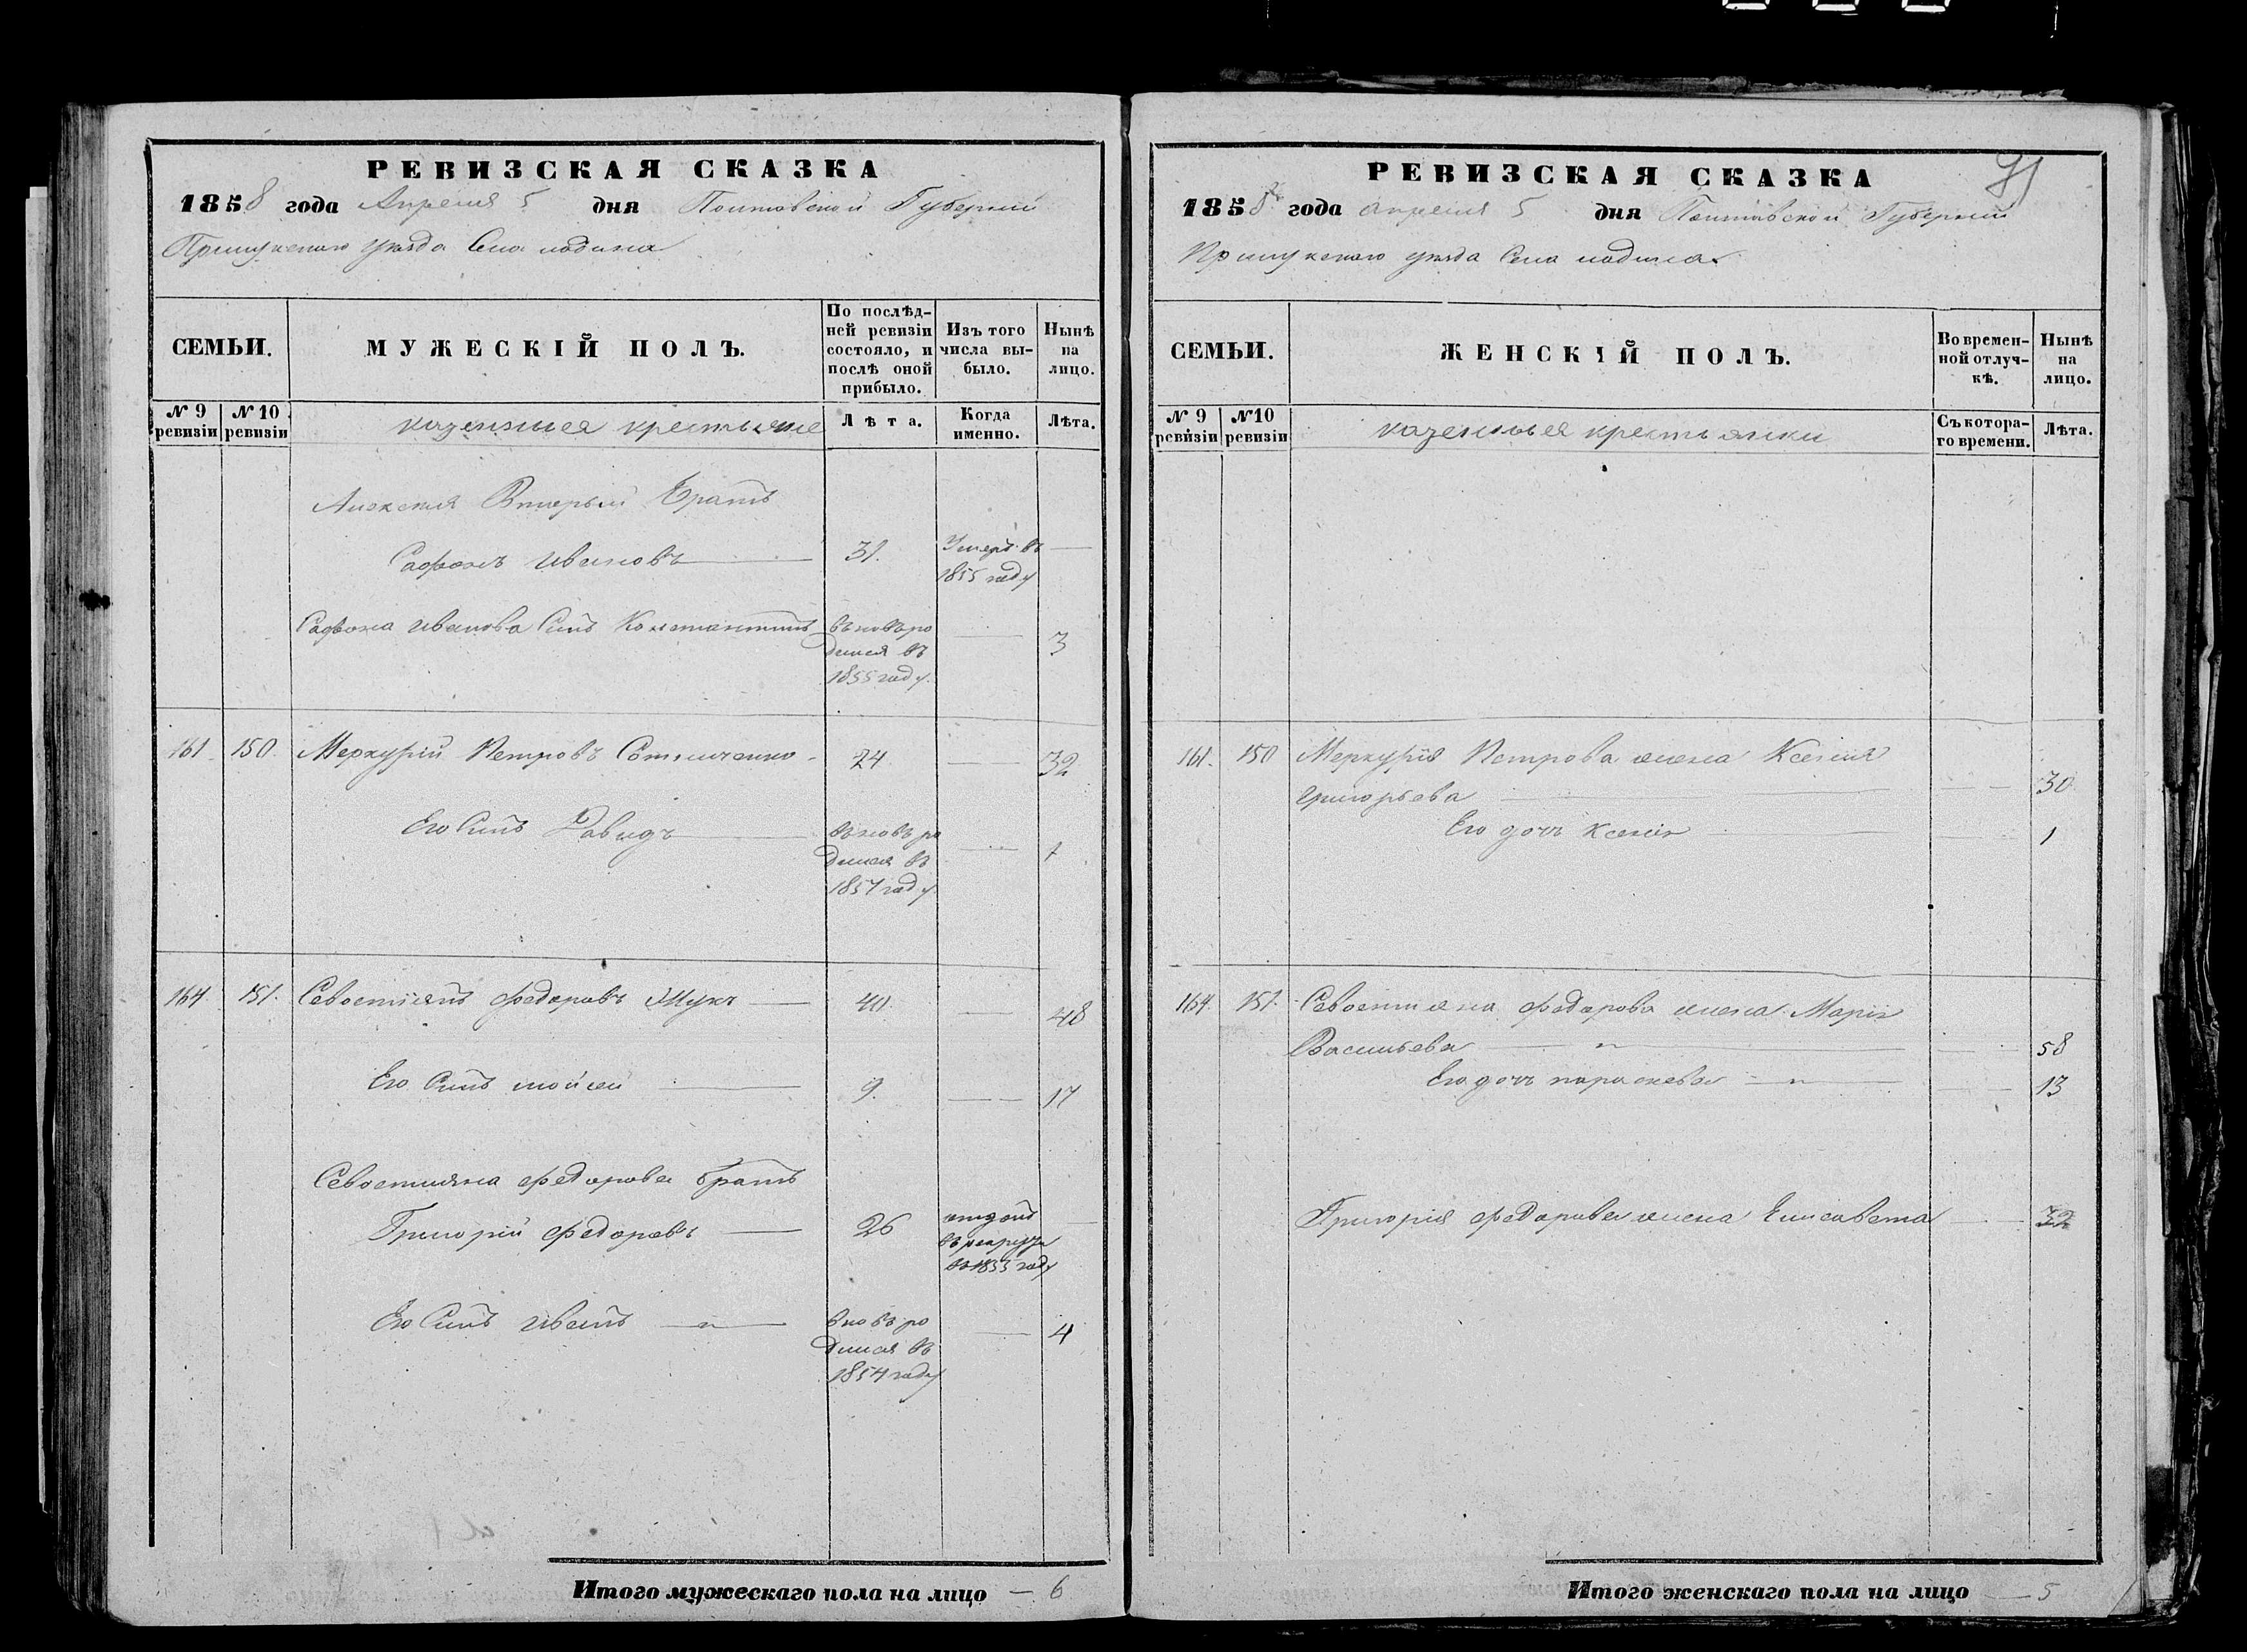 РЕВИЗСКАЯ СКАЗКА
1858 года Апреля 5 дня Полтавской Губернии
Прилукского уезда Села ладина
СЕМЬИ.
МУЖЕСКІЙ ПОЛЪ.
По послѣд-
ней ревизіи
состояло, и
послѣ оной
прибыло.
Изъ того
числа вы-
было.
Нынѣ
на
лицо.
№ 9
ревизіи
№ 10
ревизіи
казенныя крестьяне
Лѣта.
Когда
именно.
Лѣта.
Алексея Вторый Братъ
Сафонъ Ивановъ 31. Умеръ въ
1855 году
Сафона Иванова Сынъ Константинъ вновь ро
дился въ
1855 году. 3
161 150. Меркурій Петровъ 24 32
Его Сынъ Давидъ вновь ро
дился въ
1857 году 1
164. 151. Севостіянъ Федоровъ Жукъ 40. 48
Его Сынъ мойсей 9. 17
Севостияна Федорова братъ
Григорій Федоровъ 26 отданъ
въ рекруты
въ 1855 году
Его Сынъ Иванъ вновь ро
дился въ
1854 году 4
Итого мужескаго пола на лицо — 6
РЕВИЗСКАЯ СКАЗКА
1858 года апреля 5 дня Полтавской Губернии
Прилукского уезда Села ладина
СЕМЬИ.
ЖЕНСКІЙ ПОЛЪ.
Во времен-
ной отлуч-
кѣ.
Нынѣ
на
лицо.
№ 9
ревизіи
№10
ревизіи
казенныя крестьянки
Съ котора-
го времени.
Лѣта.
161. 150 Меркурія Петрова жена Ксения
Григорьева 30
Его дочь Ксенія 1
164. 151. Севостияна Федорова жена Марія
Васильева 58
Его дочь параскева 13
Григорія Федорова жена Елисавета 32
Итого женскаго пола на лицо — 5